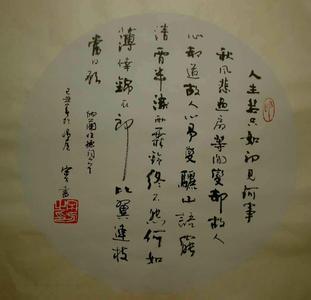 人生若只如初见何事
秋风悲画扇等闲變却故人
心却道故人心易變驪山語罷
清宵半泪雨霖鈴终不怨何如
薄倖錦衣郎比翼連枝
當日願
納蘭性德詞一首
己丑春於